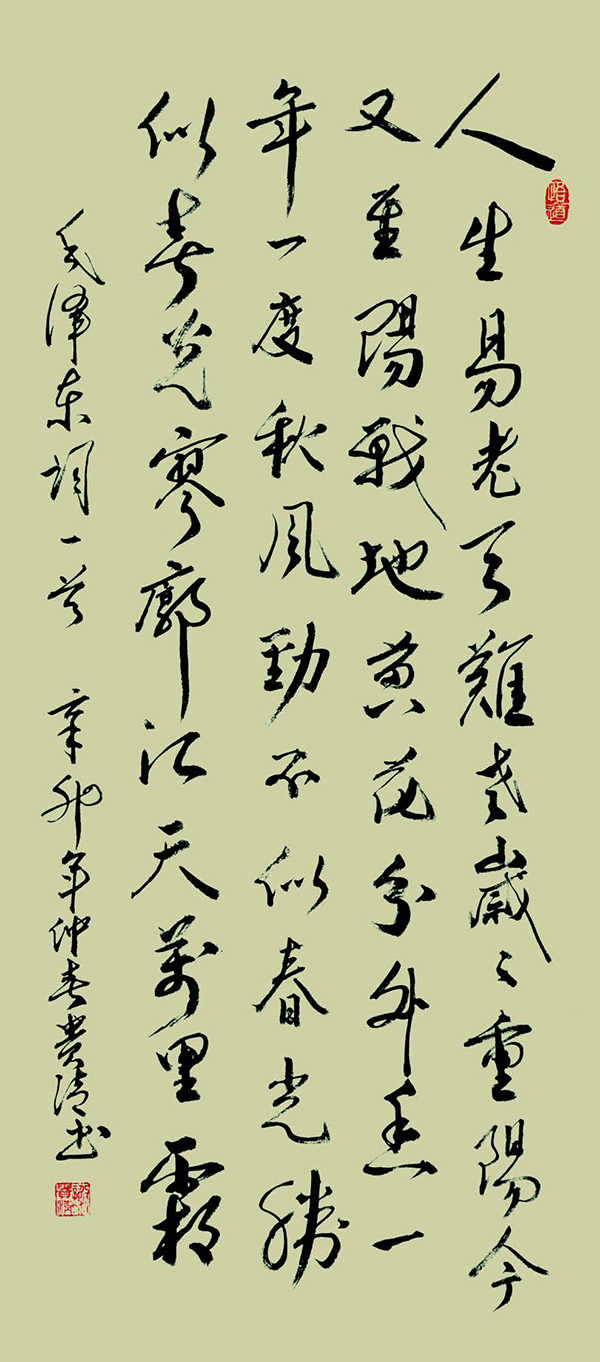 悟道
人生易老天難老歲々重陽今
又重陽戰地黄花分外香一
年一度秋風勁不似春光勝
似春光寥廓江天萬里霜
毛泽东词一首 辛卯年仲春贵清书